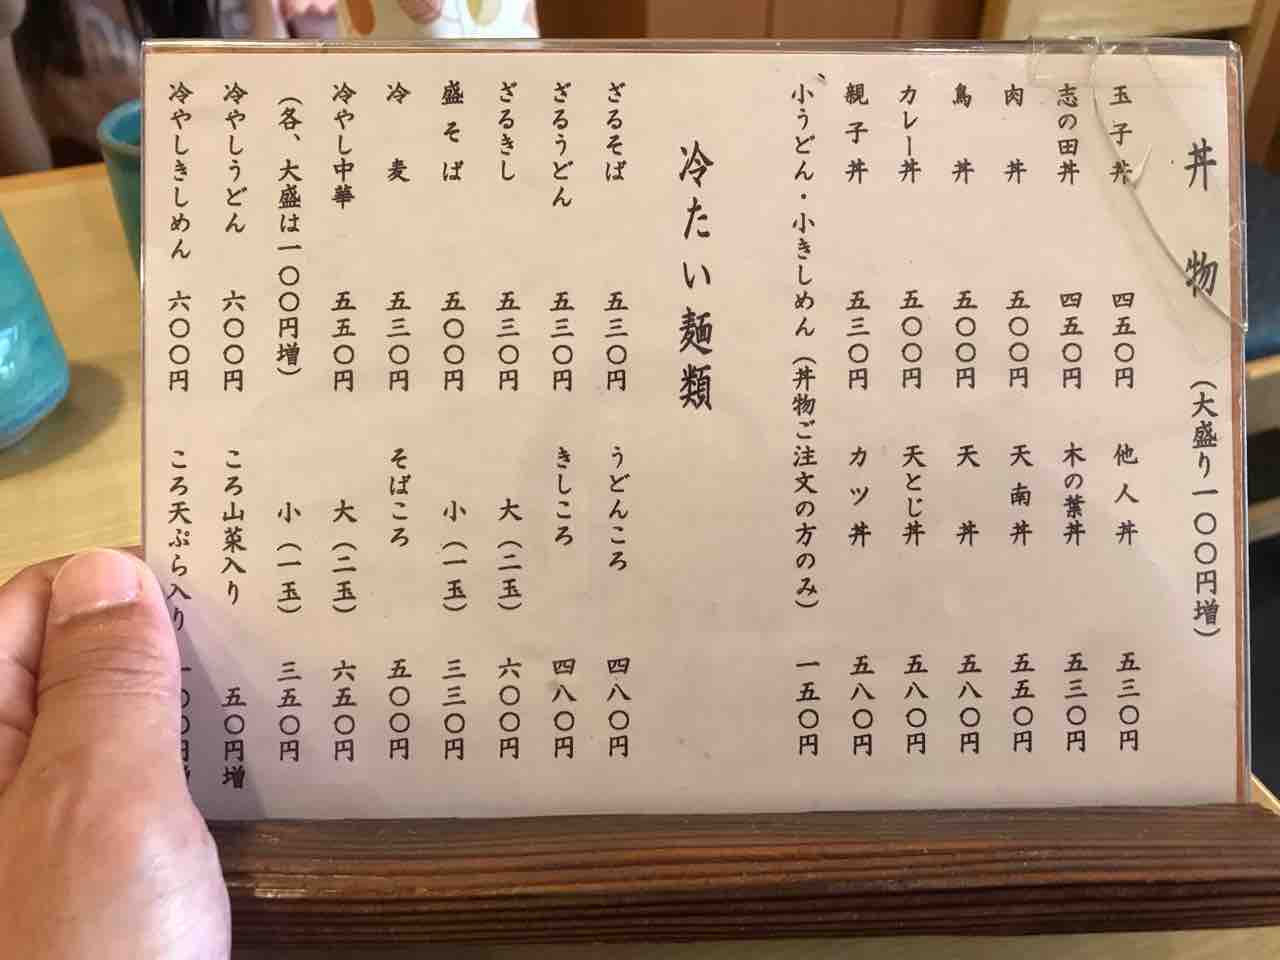 丼物（大盛り一〇〇円増）
玉子丼 四五〇円
志の田丼 四五〇円
肉丼 五〇〇円
鳥丼 五〇〇円
カレー丼 五〇〇円
親子丼 五三〇円
他人丼 五三〇円
木の葉丼 五三〇円
天南丼 五五〇円
天丼 五八〇円
天とじ丼 五八〇円
カツ丼 五八〇円
小うどん・小きしめん（丼物ご注文の方のみ） 一五〇円
冷たい麺類
ざるそば 五三〇円
ざるうどん 五三〇円
ざるきし 五三〇円
盛そば 五〇〇円
冷麦 五三〇円
冷やし中華 五五〇円
（各、大盛は一〇〇円増）
冷やしうどん 六〇〇円
冷やしきしめん 六〇〇円
うどんころ 四八〇円
きしころ 四八〇円
大（二玉） 六〇〇円
小（一玉） 三三〇円
そばころ 五〇〇円
大（二玉） 六五〇円
小（一玉） 三五〇円
ころ山菜入り 五〇円増
ころ天ぷら入り 一〇〇円増